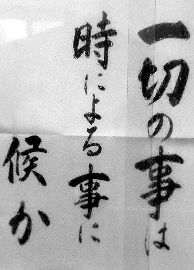 一切の事は
時による事に
候か